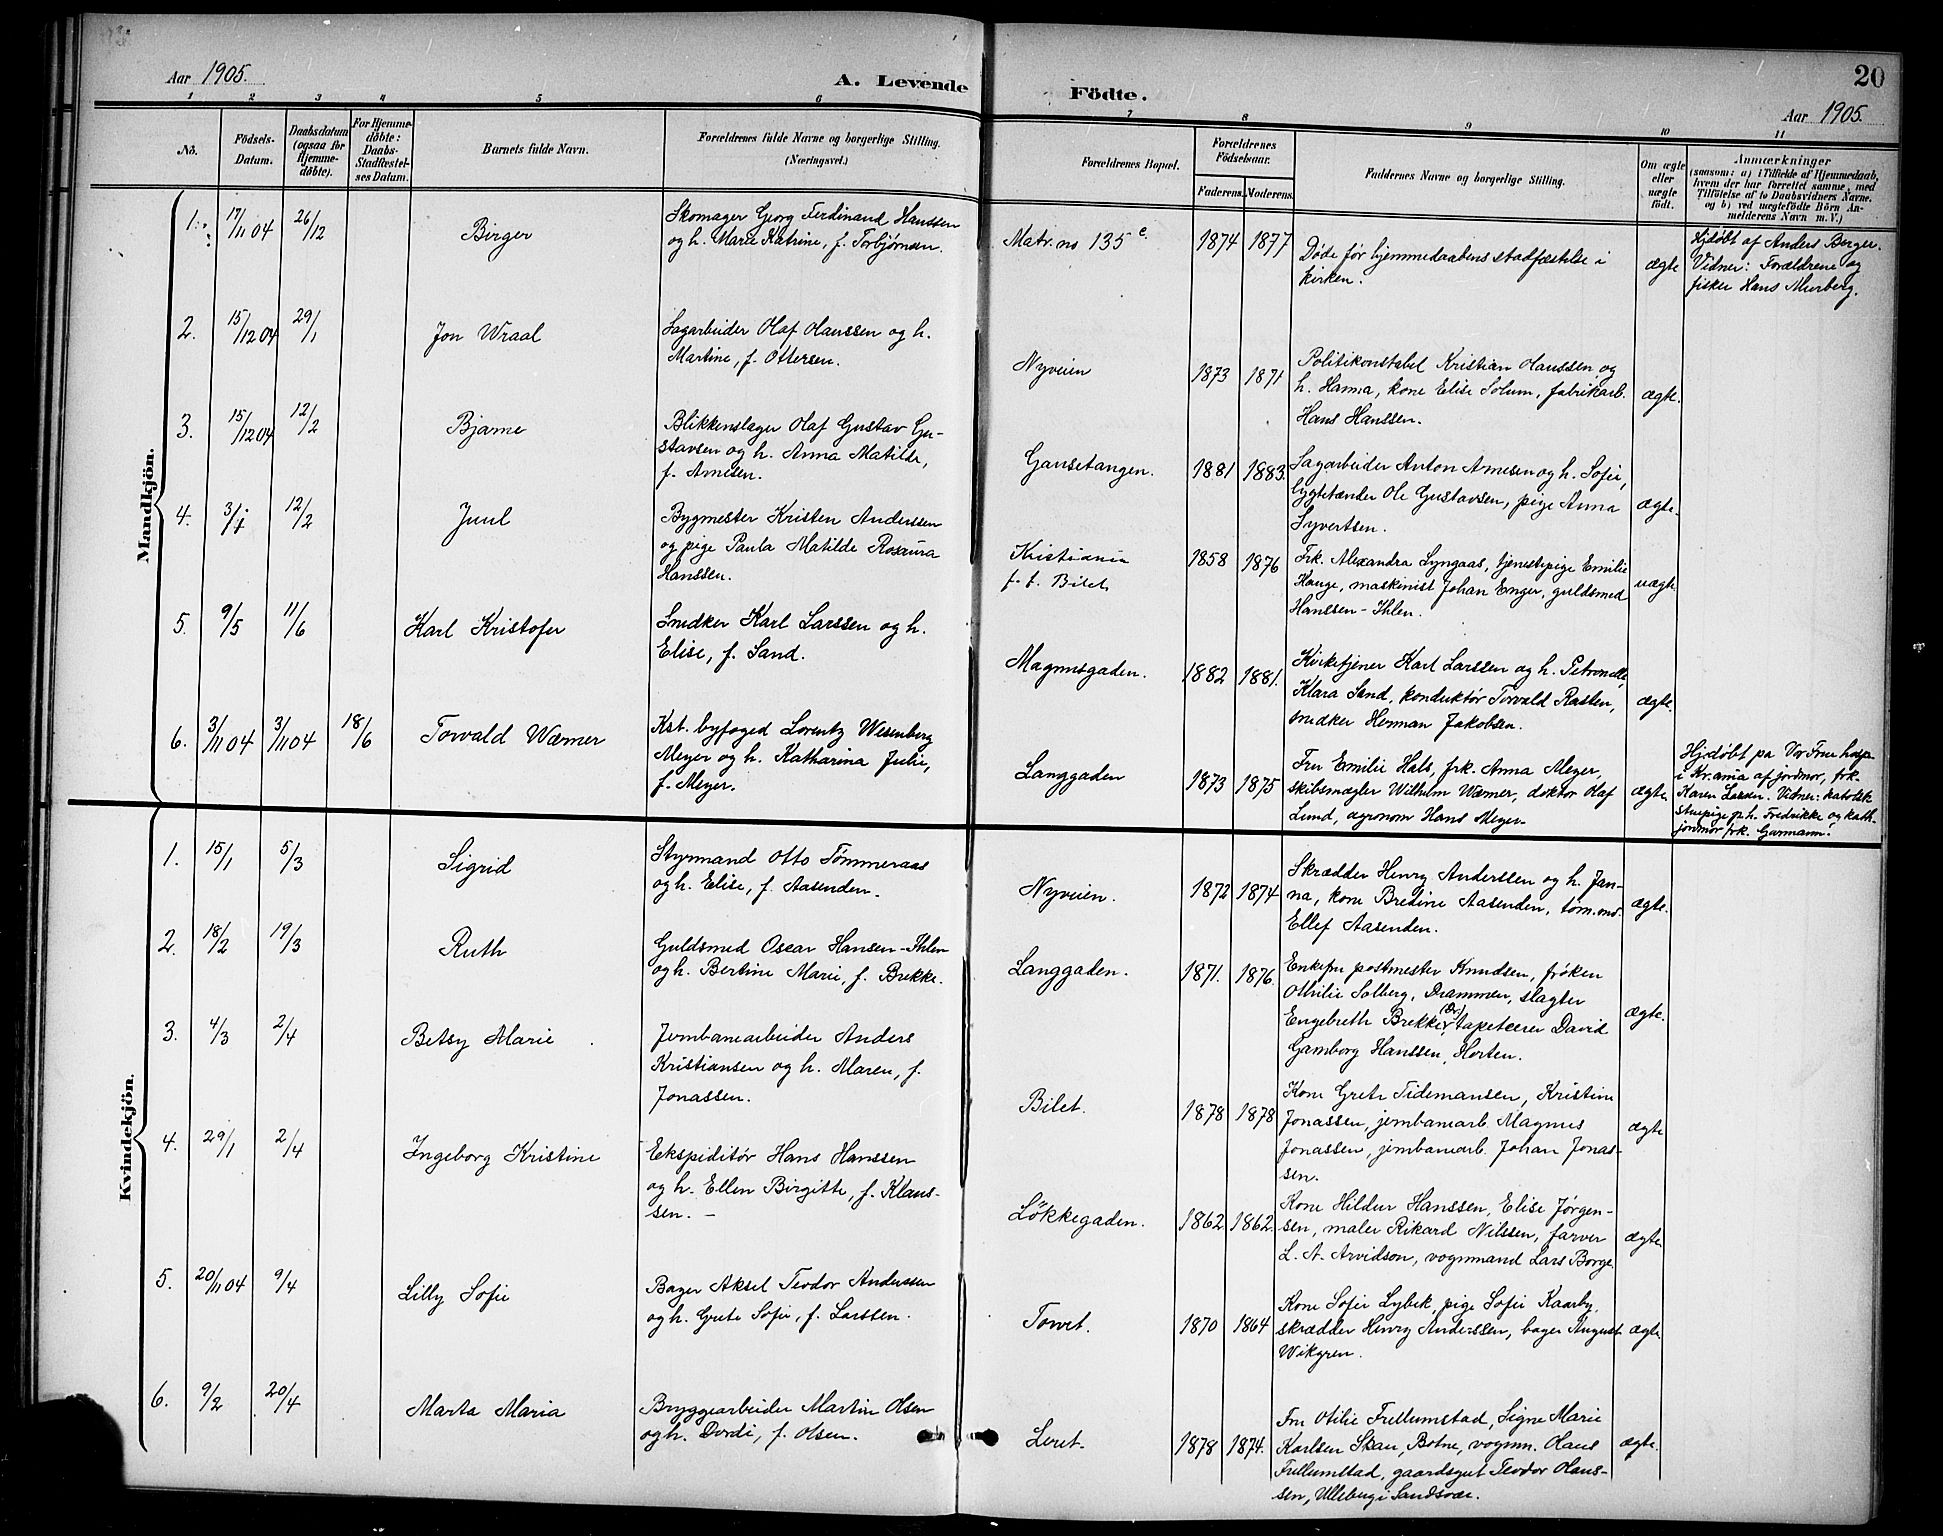 Aar 1905.
A. Levende
Födte.
20
Aar 1905.
1 2 3 4 5 6 7 8 9 10 11
No.
Födsels-
Datum.
Daabsdatum
(ogsaa for
Hjemme-
döbte).
For Hjemme-
döbte:
Daabs-
Stadfæstel-
ses Datum.
Barnets fulde Navn.
Forældrenes fulde Navne og borgerlige Stilling.
(Næringsvei.)
Forældrenes Bopæl.
Forældrenes
Födselsaar.
Faderens. Moderens.
Faddernes Navne og borgerlige Stilling.
Om ægte
eller
uægte
födt.
Anmærkninger
(saasom: a) i Tilfælde af Hjemmedaab,
hvem der har forrettet samme, med
Tilföielse af to Daabsvidners Navne.
og b) ved uægtefödte Börn An-
melderens Navn m. V.)
Mandkjön.
1. 17/11 04 26/12 Birger
Skomager Georg Ferdinand Hanssen
og h. Marie Katrine, f. Torbjørnsen.
Matr. no 135 c. 1874 1877
Døde før hjemmedaabens stadfæstelse i
kirken.
ægte
Hjdøbt af Anders Berger.
Vidner: Forældrene og
fisker Hans Murberg.
2. 15/12 04 29/1 Jon Wraal
Sagarbeider Olaf Hanssen og h.
Martine, f. Ottersen.
Nyveien 1873 1871
Politikonstabel Kristian Hanssen og
h. Hanna, kone Elise Solum, fabrikarb.
Hans Hanssen.
ægte.
3. 15/12 04 12/2 Bjarne
Blikkenslager Olaf Gustav Gu-
stavsen og h. Anna Matilde,
f. Arnesen.
Gansetangen. 1881 1883.
Sagarbeider Anton Arnesen og h. Sofie,
lygtetænder Ole Gustavsen, pige Anna
Syvertsen.
ægte.
4. 3/1 12/2 Juul
Bygmester Kristen Anderssen
og pige Paula Matilde Rosaura
Hanssen.
Kristiania
f. t. Bilet. 1858 1876
Frk. Alexandra Lyngaas, tjenestepige Emilie
Hauge, maskinist Johan Enger, guldsmed
Hanssen-Ihlen.
uægte.
5. 9/5 11/6 Karl Kristofer
Snedker Karl Larssen og h.
Elise, f. Sand.
Magnusgaden. 1882 1881.
Kirketjener Karl Larssen og h. Petronelle,
Klara Sand, konduktør Torvald Rasten,
snedker Herman Jakobsen.
ægte.
6. 3/11 04 3/11 04 18/6 Torvald Wærner
Kst. byfoged Lorentz Wesenberg
Meyer og h. Katharina Julie,
f. Meyer.
Langgaden 1873 1875
Fru Emilie Hals, frk. Anna Meyer,
skibsmægler Wilhelm Wærner, doktor Olaf
Lund, agronom Hans Meyer.
ægte.
Hjdøbt paa Vor Frue hosp.
i Kr.ania af jordmor, frk.
Karen Larsen. Vidner: katolsk
stuepige p. h. Fredrikke og kath.
jordmor frk. Garmann.
Kvindekjön.
1. 15/1 5/3 Sigrid
Styrmand Otto Tømmeraas
og h. Elise, f. Aasenden.
Nyveien. 1872 1874
Skrædder Henry Anderssen og h. Jan-
na, kone Bredine Aasenden, tøm.md.
Ellef Aasenden.
ægte.
2. 18/2 19/3 Ruth
Guldsmed Oscar Hansen-Ihlen
og h. Bertine Marie, f. Brekke.
Langgaden. 1871. 1876.
Enkefru postmester Knudsen, frøken
Othilie Solberg, Drammen, slagter
Engebreth Brekke, (Dr) tapetserer David
Gamborg Hanssen, Horten.
ægte.
3. 4/3 2/4 Betsy Marie
Jernbanearbeider Anders
Kristiansen og h. Maren, f.
Jonassen.
Bilet. 1878 1878
Kone Grete Tidemansen, Kristine
Jonassen, jernbanearb. Magnus
Jonassen, jernbanearb. Johan Jonas-
sen.
ægte
4. 29/1 2/4 Ingeborg Kristine
Ekspeditør Hans Hanssen
og h. Ellen Birgitte, f. Klaus-
sen. –
Løkkegaden. 1862 1862.
Kone Hildur Hanssen, Elise Jørgen-
sen, maler Rikard Nilssen, farver
L. A. Arvidson, vognmand Lars Borge.
ægte
5. 20/11 04 9/4 Lilly Sofie
Bager Aksel Teodor Anderssen
og h. Grete Sofie, f. Larssen.
Torvet. 1870 1864
Kone Sofie Lybek, pige Sofie Kaarby,
skrædder Henry Anderssen, bager August
Wikgren.
ægte
6. 9/2 20/4 Marta Maria
Bryggearbeider Martin Olsen
og h. Dordi, f. Olsen.
Leret. 1878 1874.
Fru Otilie Frellumstad, Signe Marie
Karlsen Skau, Botne, vognm. Hans
Frellumstad, gaardsgut Teodor Hans-
sen, Ulleberg i Sandsvær.
ægte.